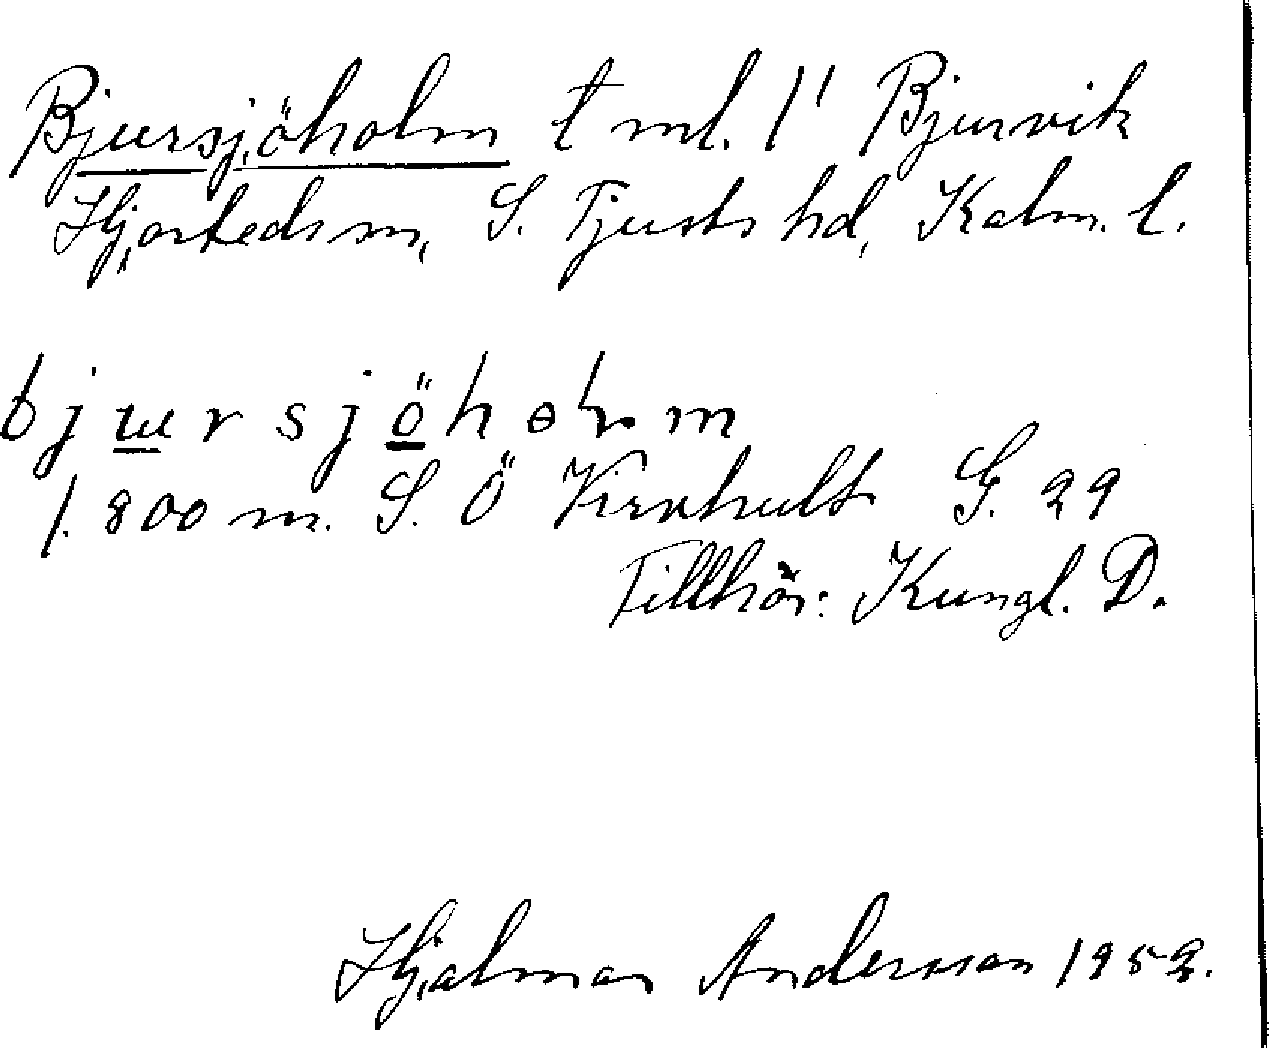 Bjursjöholm t ml. 1" Bjurvik
Hjorteds sn, S. Tjusts hd, Kalm. l.
bjursjöhoɫm
1. 800 m. S. Ö Virkhult G. 29
Tillhör: Kungl. D.
Hjalmar Andersson 1952.